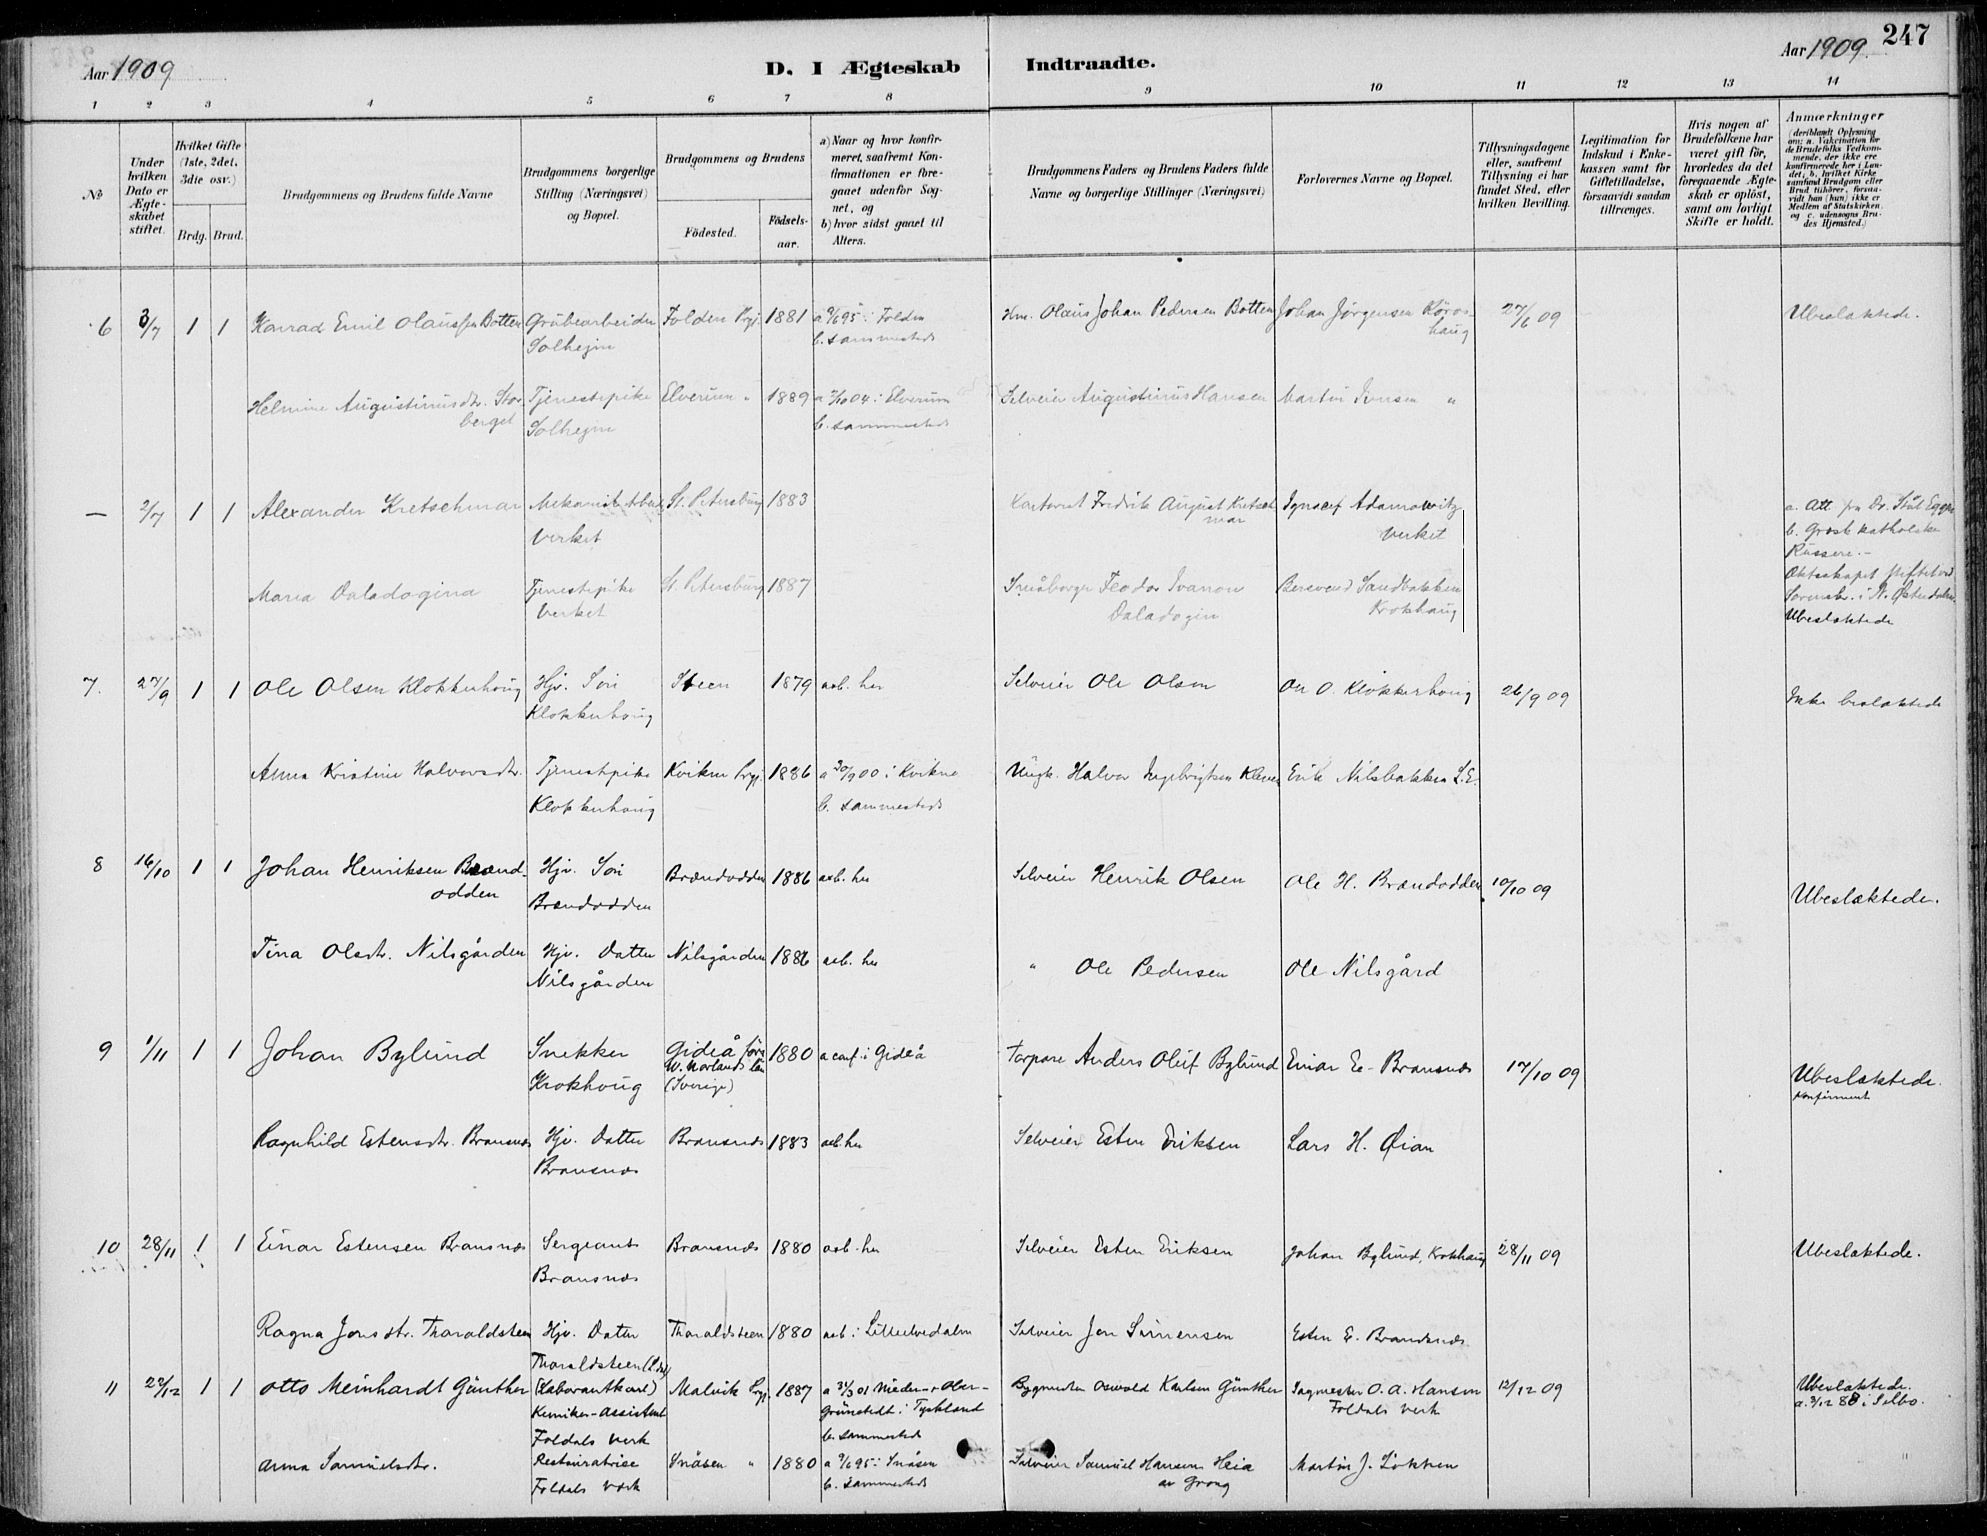 247
Aar 1909
D. I Ægteskab Indtraadte.
Aar 1909.
1 2 3 4 5 6 7 8 9 10 11 12 13 14
№
Under hvilken Dato er Ægteskabet stiftet.
Hvilket Gifte (1ste, 2det, 3die osv.)
Brdg. Brud.
Brudgommens og Brudens fulde Navne
Brudgommens borgerlige Stilling (Næringsvei) og Bopæl.
Brudgommens og Brudens
Födested.
Födselsaar.
a) Naar og hvor konfirmeret, saafremt Konfirmationen er foregaaet udenfor Sognet, og
b) hvor sidst gaaet til Alters.
Brudgommens Faders og Brudens Faders fulde Navne og borgerlige Stillinger (Næringsvei)
Forlovernes Navne og Bopæl.
Tillysningsdagene eller, saafremt Tillysning ei har fundet Sted, efter hvilken Bevilling.
Legitimation for Indskud i Enkekassen samt for Giftetilladelse, forsaavidt saadan tiltrænges.
Hvis nogen af Brudefolkene har været gift för, hvorledes da det foregaaende Ægteskab er oplöst, samt om lovligt Skifte er holdt.
Anmærkninger
(deriblandt Oplysning om: a. Vakcination for de Brudefolks Vedkommende, der ikke ere konfirmerede her i Landet, b. hvilket Kirkesamfund Brudgom eller Brud tilhörer, forsaavidt han (hun) ikke er Medlem af Statskirken, og c. udensogns Brudes Hjemsted.)
6 3/7 1 1 Konrad Emil Olaussen Botten Grubearbeider Folden Prgj. 1881 a 9/6 95 i Folden Hm. Olaus Johan Pedersen Botten Johan Jørgensen 27/6 09 Ubeslaktede.
Solhejm b. sammesteds haug
Helmine Augustinusdtr. Stor- Tjenestepike Elverum " 1889 a 2/10 04 i Elverum Selveier Augustinus Hansen Martin Iversen "
berget Solhejm b. sammesteds
— 2/7 1 1 Alexander Kretschmar St. Petersburg 1883 Fredrik August Kretsch- Adamowitz a. Att. fra Dr.
Verket mar Verket b. Græsk katholske
Russere.-
Maria Daladogina Tjenestepike St. Petersburg 1887 Småborger Feodor Ivanow Bersvend Sandbakken Ektoskapet stiftet ved
Verket Daladogin Krokhaug Sorenskr. i N. Østerdalen.
Ubeslektede
7. 27/9 1 1 Ole Olsen Klokkerhoug Hjv. Søn Steen 1879 her Selveier Ole Olsen Ole O. Klokkerhoug 26/9 09 Ikke beslaktede
Klokkerhoug
Anna Kristine Halvorsdtr. Tjenestepike Kvikne Prgj. 1886 a 30/9 00 i Kvikne Ungk. Halvor Ingebrigtsen Kleven Erik Nilsbakken L.E.
Klokkerhoug b. sammesteds
8 16/10 1 1 Johan Henriksen Brænd- Hjv. Søn Brændodden 1886 aob. her Selveier Henrik Olsen Ole H. Brændodden 10/10 09 Ubeslektede.
odden Brændodden
Tina Olsdtr. Nilsgården Hjv. Datter Nilsgården 1886 aob. her " Ole Pedersen Ole Nilsgård
Nilsgården
9 1/11 1 1 Johan Bylund Snekker Gideå 1880 a conf. i Gideå Torpare Anders Oluf Bylund Einar E. Bransnes 17/10 09 Ubeslektede.
Krokhoug W. Norlands län konfirment
(Sverige)
Ragnhild Estensdtr. Bransnes Hjv. Datter Bransnes 1883 aob. her Selveier Esten Eriksen Lars H. Øian
Bransnes
10 28/11 1 1 Einar Estensen Bransnes Sergeant Bransnes 1880 aob. her Selveier Esten Eriksen Johan Bylund, Krokhaug 28/11 09 Ubeslaktede.
Bransnes
Ragna Jonsdtr. Tharaldsteen Hjv. Datter Tharaldsteen 1880 aob. i Lilleelvedalen Selveier Jon Simensen Esten E. Brandsnes
Tharaldsteen
11 29/12 1 1 Otto Meinhardt Günther (Laborantkarl) Malvik Prgj. 1887 a 31/3 01 Nieder- Ober- Bygmester Oswald Karlsen Günther Sagmester O. A. Hansen 12/12 09 Ubeslaktede.
Kemiker-assistent Grünstedt i Tyskland Foldals Verk a. 9/12 88 i Selbo.
Foldals Verk b. sammesteds
Anna Samuelsdtr. Restauratrise Snåsen " 1880 a 9/6 95 i Snåsen Selveier Samuel Hansen Heia Martin J. Løkken
Foldals Værk b. sammesteds av Grong